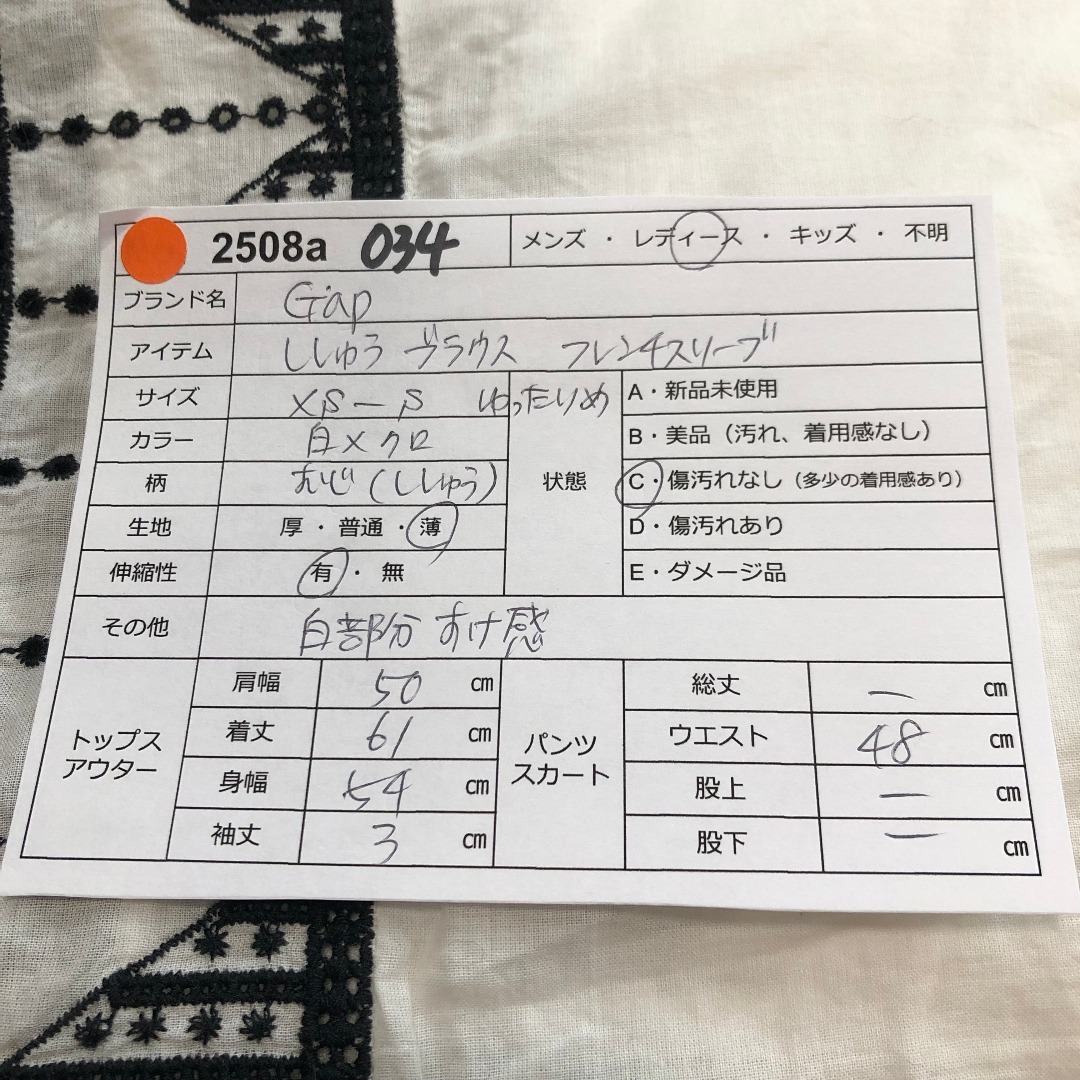 2508a 034 メンズ ・ レディース ・ キッズ ・ 不明
ブランド名 Gap
アイテム ししゅう ブラウス フレンチスリーブ
サイズ XS-S ゆったりめ
カラー 白×クロ
柄 むじ(ししゅう)
生地 厚・普通・薄
伸縮性 有・無
状態
A・新品未使用
B・美品(汚れ、着用感なし)
C・傷汚れなし(多少の着用感あり)
D・傷汚れあり
E・ダメージ品
その他 白部分 すけ感
トップス
アウター
肩幅 50 ㎝
着丈 61 ㎝
身幅 54 ㎝
袖丈 3 ㎝
パンツ
スカート
総丈 ー ㎝
ウエスト 48 ㎝
股上 ー ㎝
股下 ー ㎝